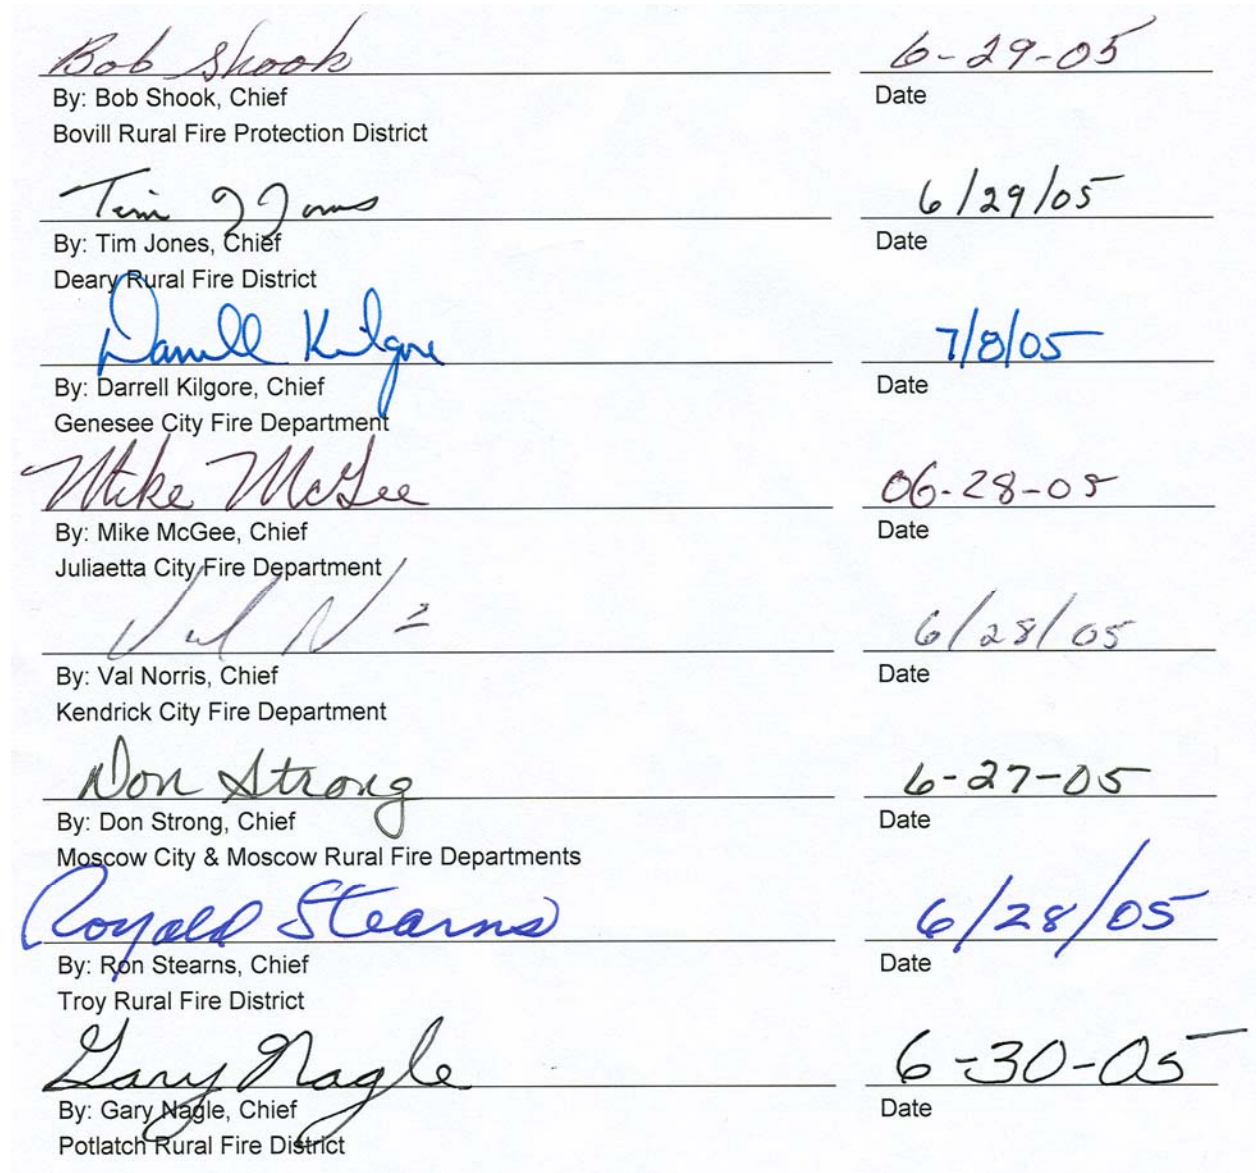 Bob Shook 6-29-05
By: Bob Shook, Chief Date
Bovill Rural Fire Protection District
Tim J Jones 6/29/05
By: Tim Jones, Chief Date
Deary Rural Fire District
Darrell Kilgore 7/8/05
By: Darrell Kilgore, Chief Date
Genesee City Fire Department
Mike McGee 06-28-05
By: Mike McGee, Chief Date
Juliaetta City Fire Department
Val 6/28/05
By: Val Norris, Chief Date
Kendrick City Fire Department
Don Strong 6-27-05
By: Don Strong, Chief Date
Moscow City & Moscow Rural Fire Departments
Ronald Stearns 6/28/05
By: Ron Stearns, Chief Date
Troy Rural Fire District
Gary Nagle 6-30-05
By: Gary Nagle, Chief Date
Potlatch Rural Fire District